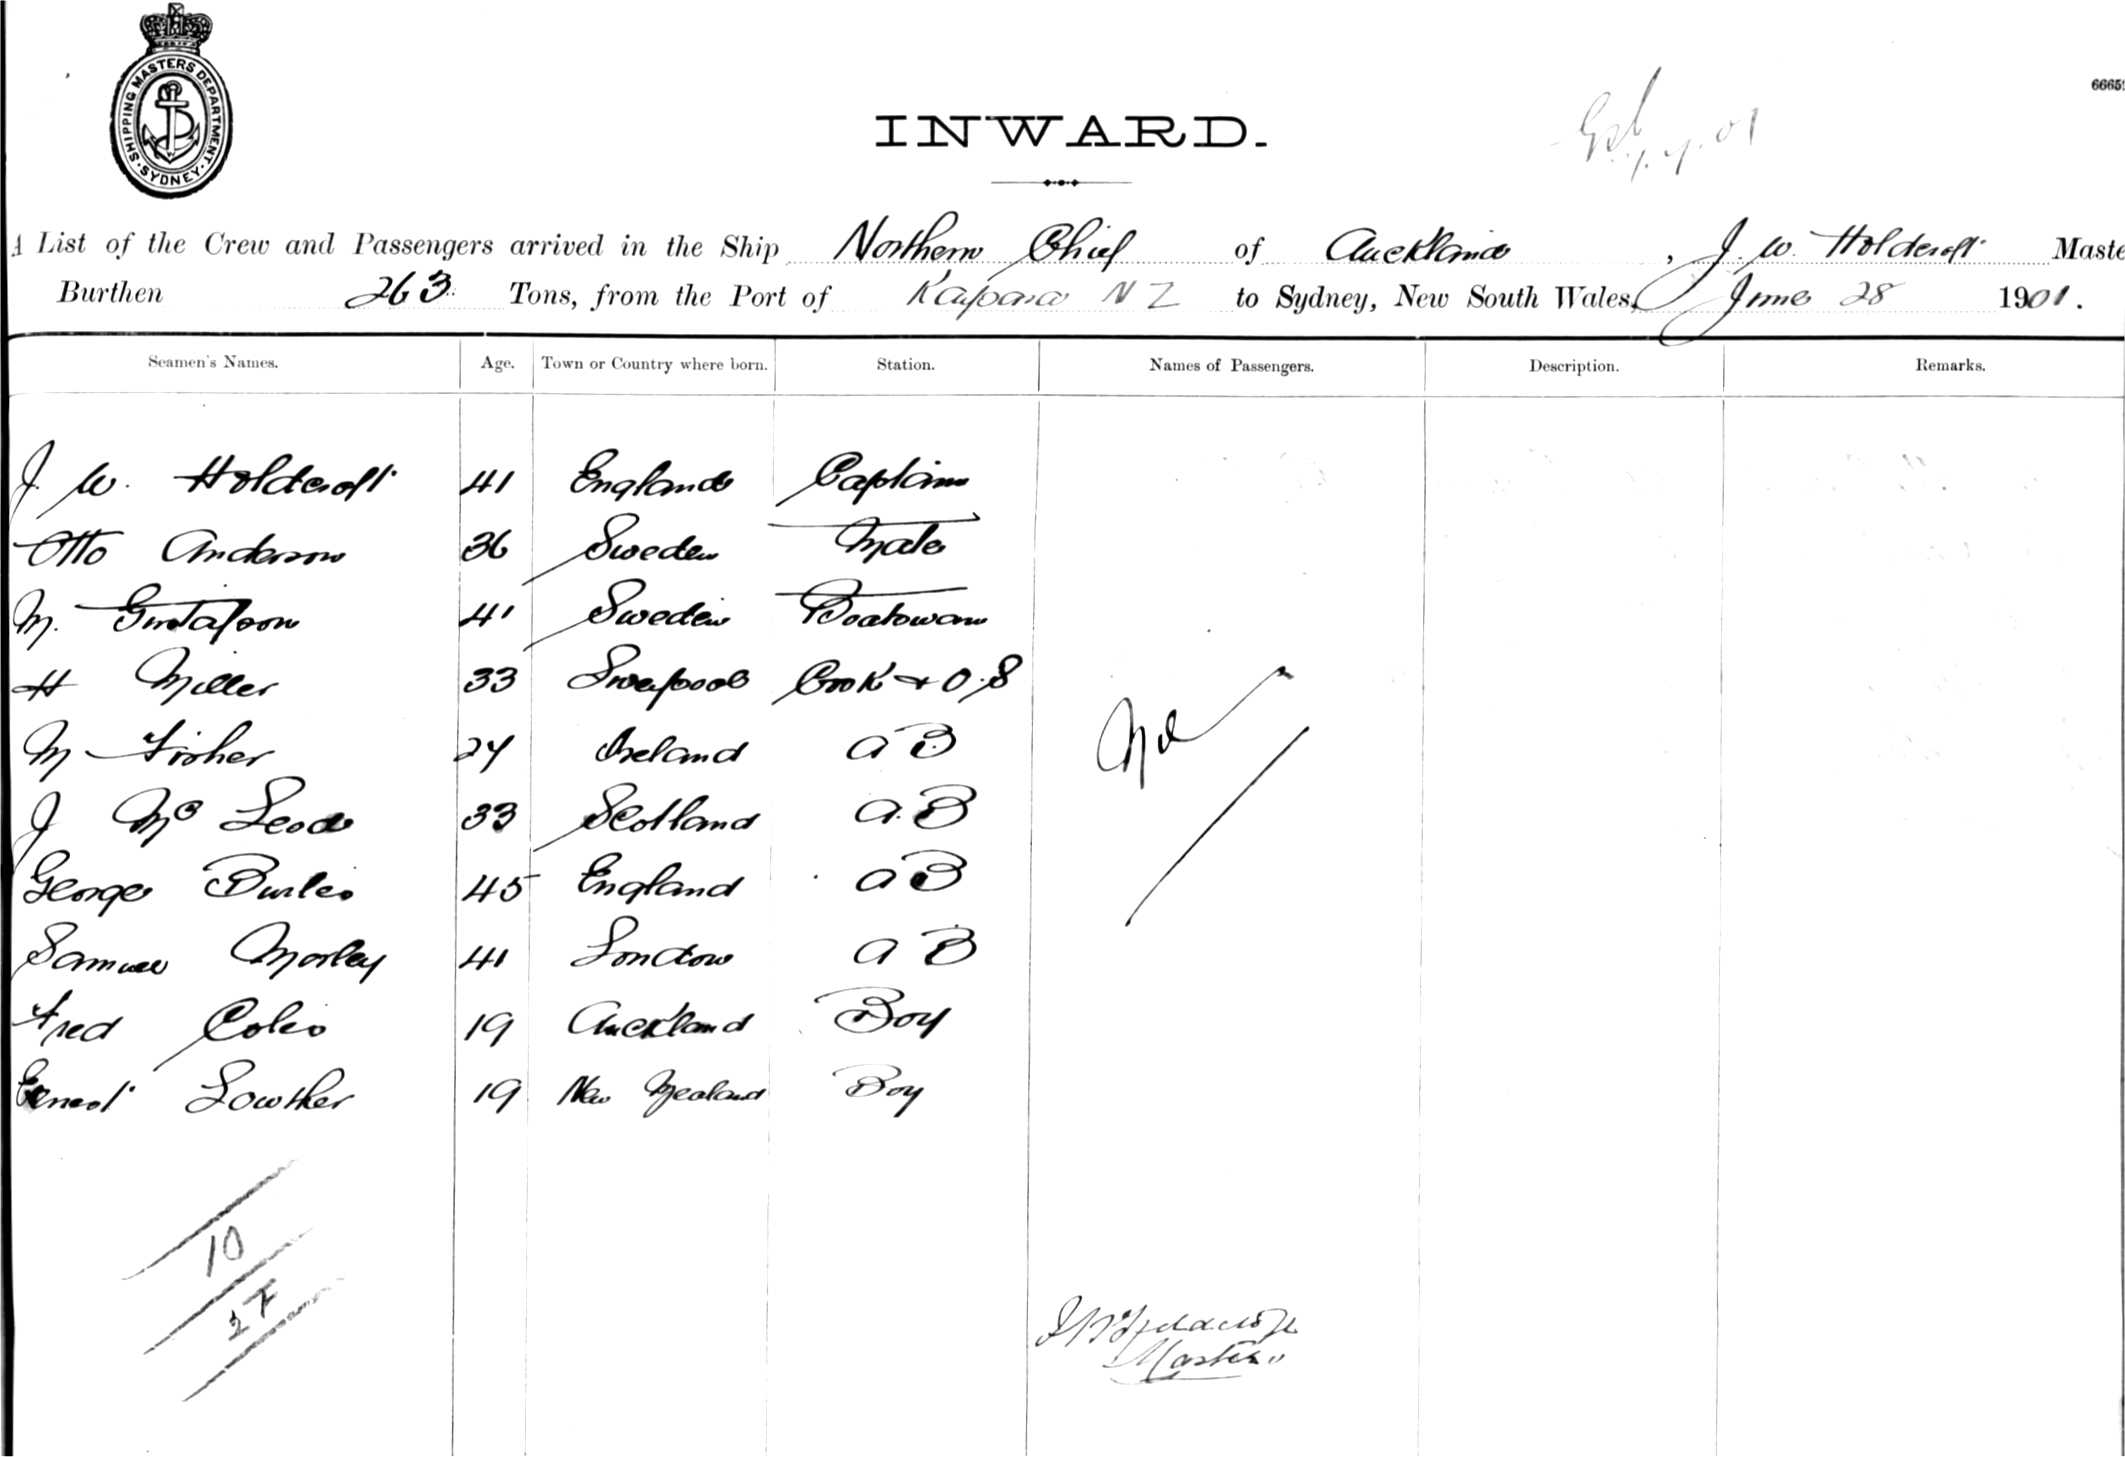 SHIPPING MASTERS DEPARTMENT
SYDNEY
6665
INWARD.
7. 01
A List of the Crew and Passengers arrived in the Ship Northern Chief of Auckland, J. W. Holdcroft Maste
Burthen 263 Tons, from the Port of Kaipara N Z to Sydney, New South Wales, June 28 1901.
Seamen's Names. Age. Town or Country where born. Station. Names of Passengers. Description. Remarks.
J. W. Holdcroft 41 England Captain
Otto Anderson 36 Sweden Mate
M. Gustafson 41 Sweden Boatswain
H Miller 33 Liverpool Cook + O.S
M Fisher 24 Ireland A B
Nil
J Mc Leod 33 Scotland A.B
George 45 England A B
Samuel Morley 41 London A B
Fred Coles 19 Auckland Boy
Ernest Lowther 19 New Zealand Boy
10
27
J W Holdcroft
Master